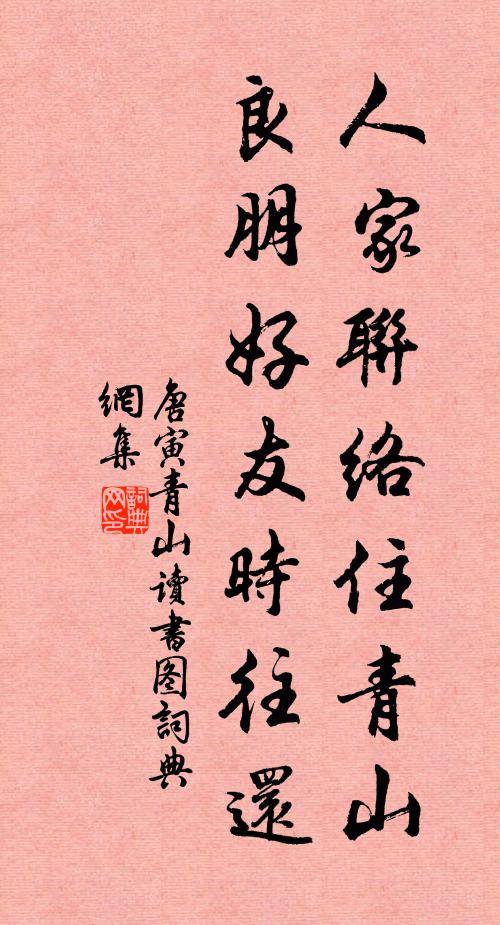 人家聯絡住青山
良朋好友時往還
唐寅青山读書图詞典
網集
詞典
网印